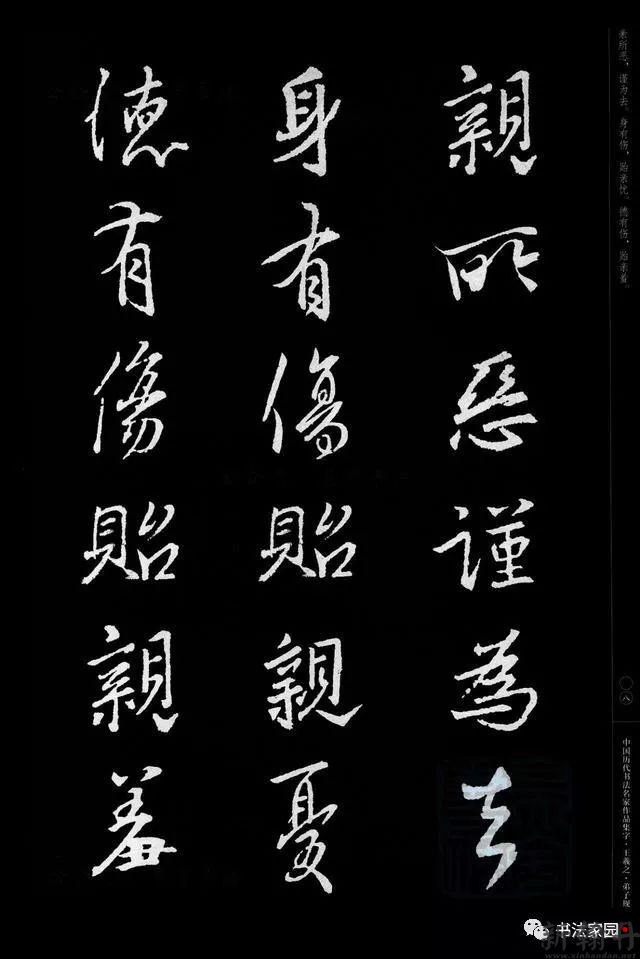 親所惡謹為去
身有傷貽親憂
德有傷貽親羞
亲所恶，谨为去。身有伤，贻亲忧。德有伤，贻亲羞。
〇八
中国历代书法名家作品集字·王羲之·弟子规
书法家园
新翰丹
www.xinhandan.net